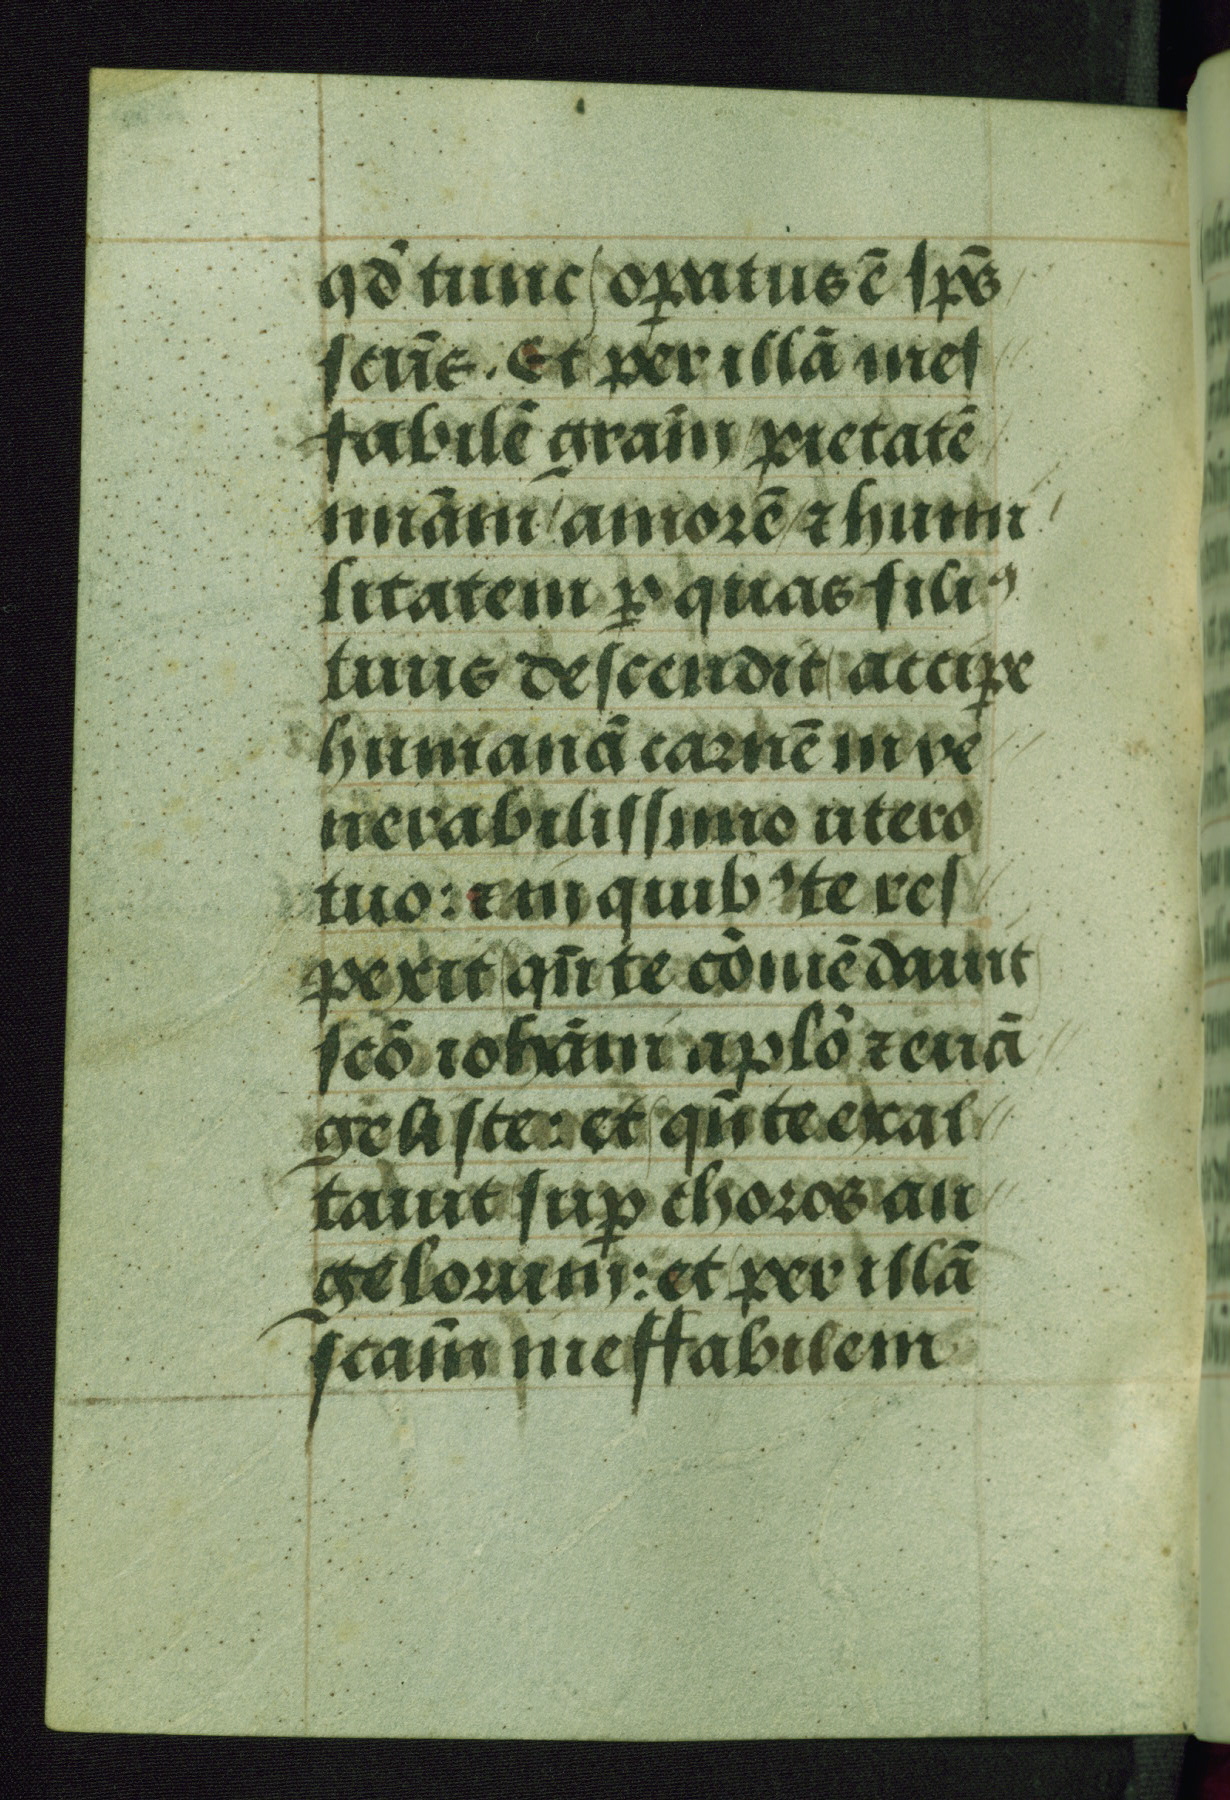 qd̄ tunc opatus ē sp̄s
sctū̄s. Et per illā inef
fabilē grā̄m pietatē
mīam amorē ⁊ humi
litatem ꝑ quas filiꝰ
tuus descendit accipe
humanā carnē in ve
nerabilissimo utero
tuo: ⁊ in quibꝰ te res
pexit qn̄ te cōmēdauit
scō iohāni aplō ⁊ euā
geliste: et qn̄ te exal
tauit suꝑ choros an
gelorum: et per illā
scām ineffabilem